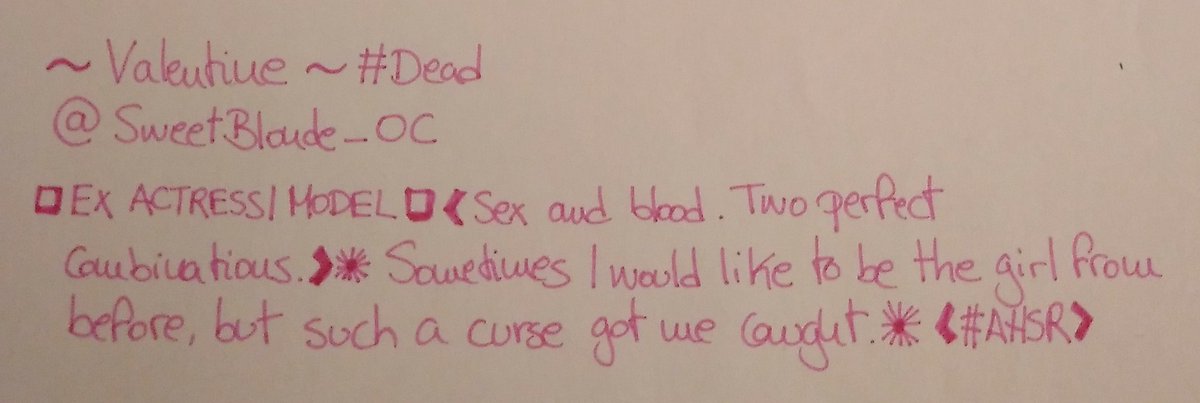 ~ Valentine ~ #Dead
@SweetBlonde_OC
□EX ACTRESS/MODEL□❮Sex and blood. Two perfect
Combinations.❯✷ Sometimes I would like to be the girl from
before, but such a curse got me caught.✷ ❮#AHSR❯